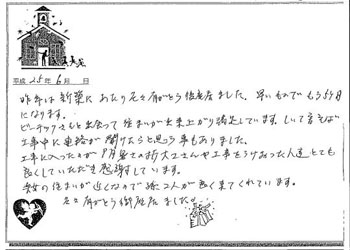 平成 25年 6月 日
昨年は新築にあたり色々有がとう御座居ました。早いものでもう5ヶ月
になります。
ビーテックさんと出会って住まいが出来上がり満足しています。しいて言えば
工事中に連絡が聞けたらと思う事もありました。
工事に入ったのが 時皆さん 大工さんや工事をうけおった人達とても
良くしていただき感謝しています。
長女の住まいが近くなので孫2人が良く来てくれています。
色々有がとう御座居ました。